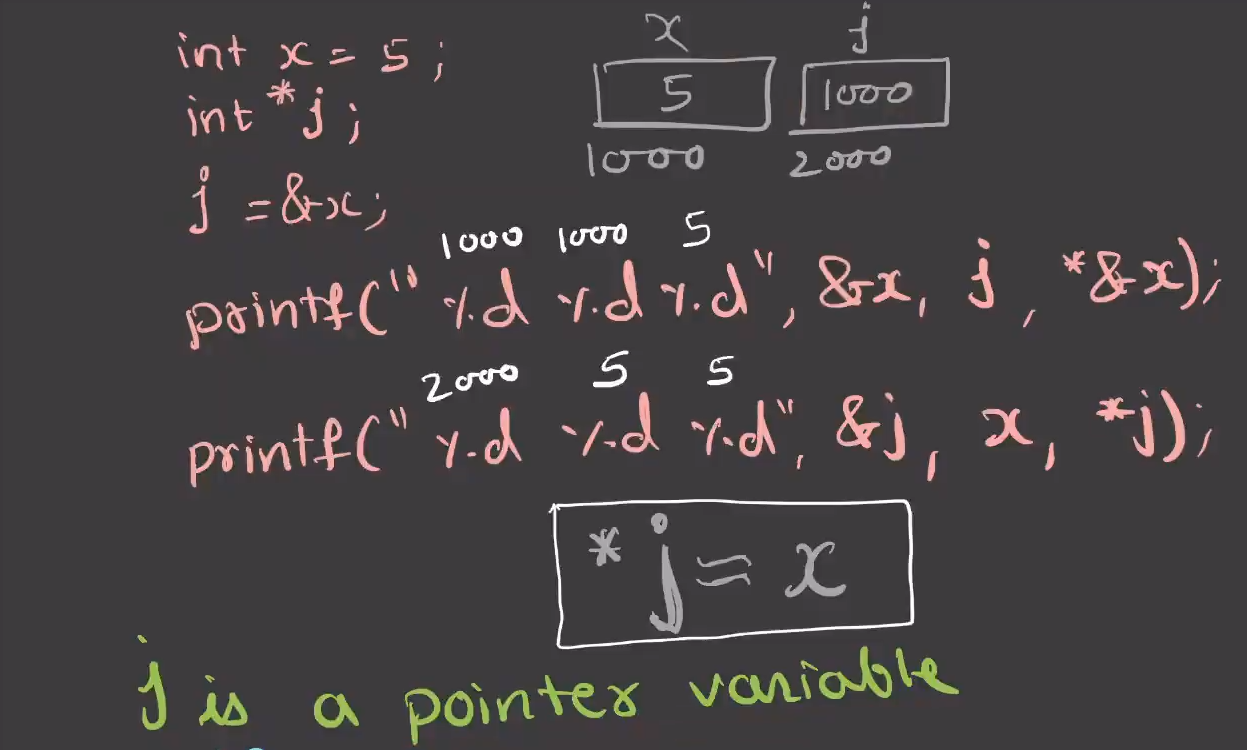 x j
int x = 5 ;
5 1000
int *j ;
1000 2000
j = &x;
1000 1000 5
printf(" %d %d %d", &x, j, *&x);
2000 5 5
printf(" %d %d %d", &j, x, *j);
*j = x
j is a pointer variable